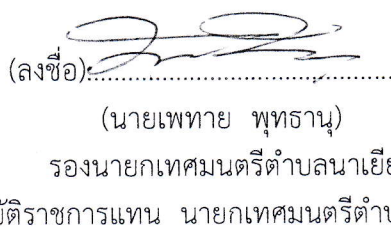 (ลงชื่อ)......................................
(นายเพทาย พุทธานุ)
รองนายกเทศมนตรีตำบลนาเยีย
บัติราชการแทน นายกเทศมนตรีตำบ